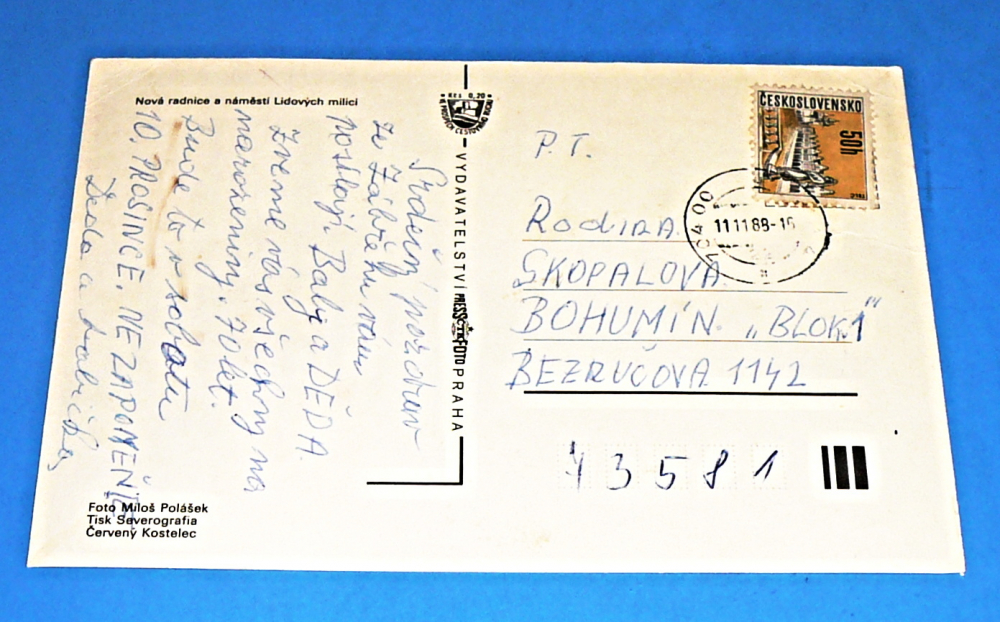 Nová radnice a náměstí Lidových milicí
Srdečný pozdrav
ze Zábřehu vám
posílají Baby a DĚDA.
Zveme vás všechny na
narozeniny. 70 let.
Bude to v sobotu
10. PROSINCE. NEZAPOMEŇTE
Děda a babička
Foto Miloš Polášek
Tisk Severografia
Červený Kostelec
Kčs 0,20
VYDAVATELSTVÍ PRESSFOTO PRAHA
ČESKOSLOVENSKO
50h
11 11 88-16
P.T.
RODINA
SKOPALOVA
BOHUMÍN „BLOK1"
BEZRUČOVA 1142
73581